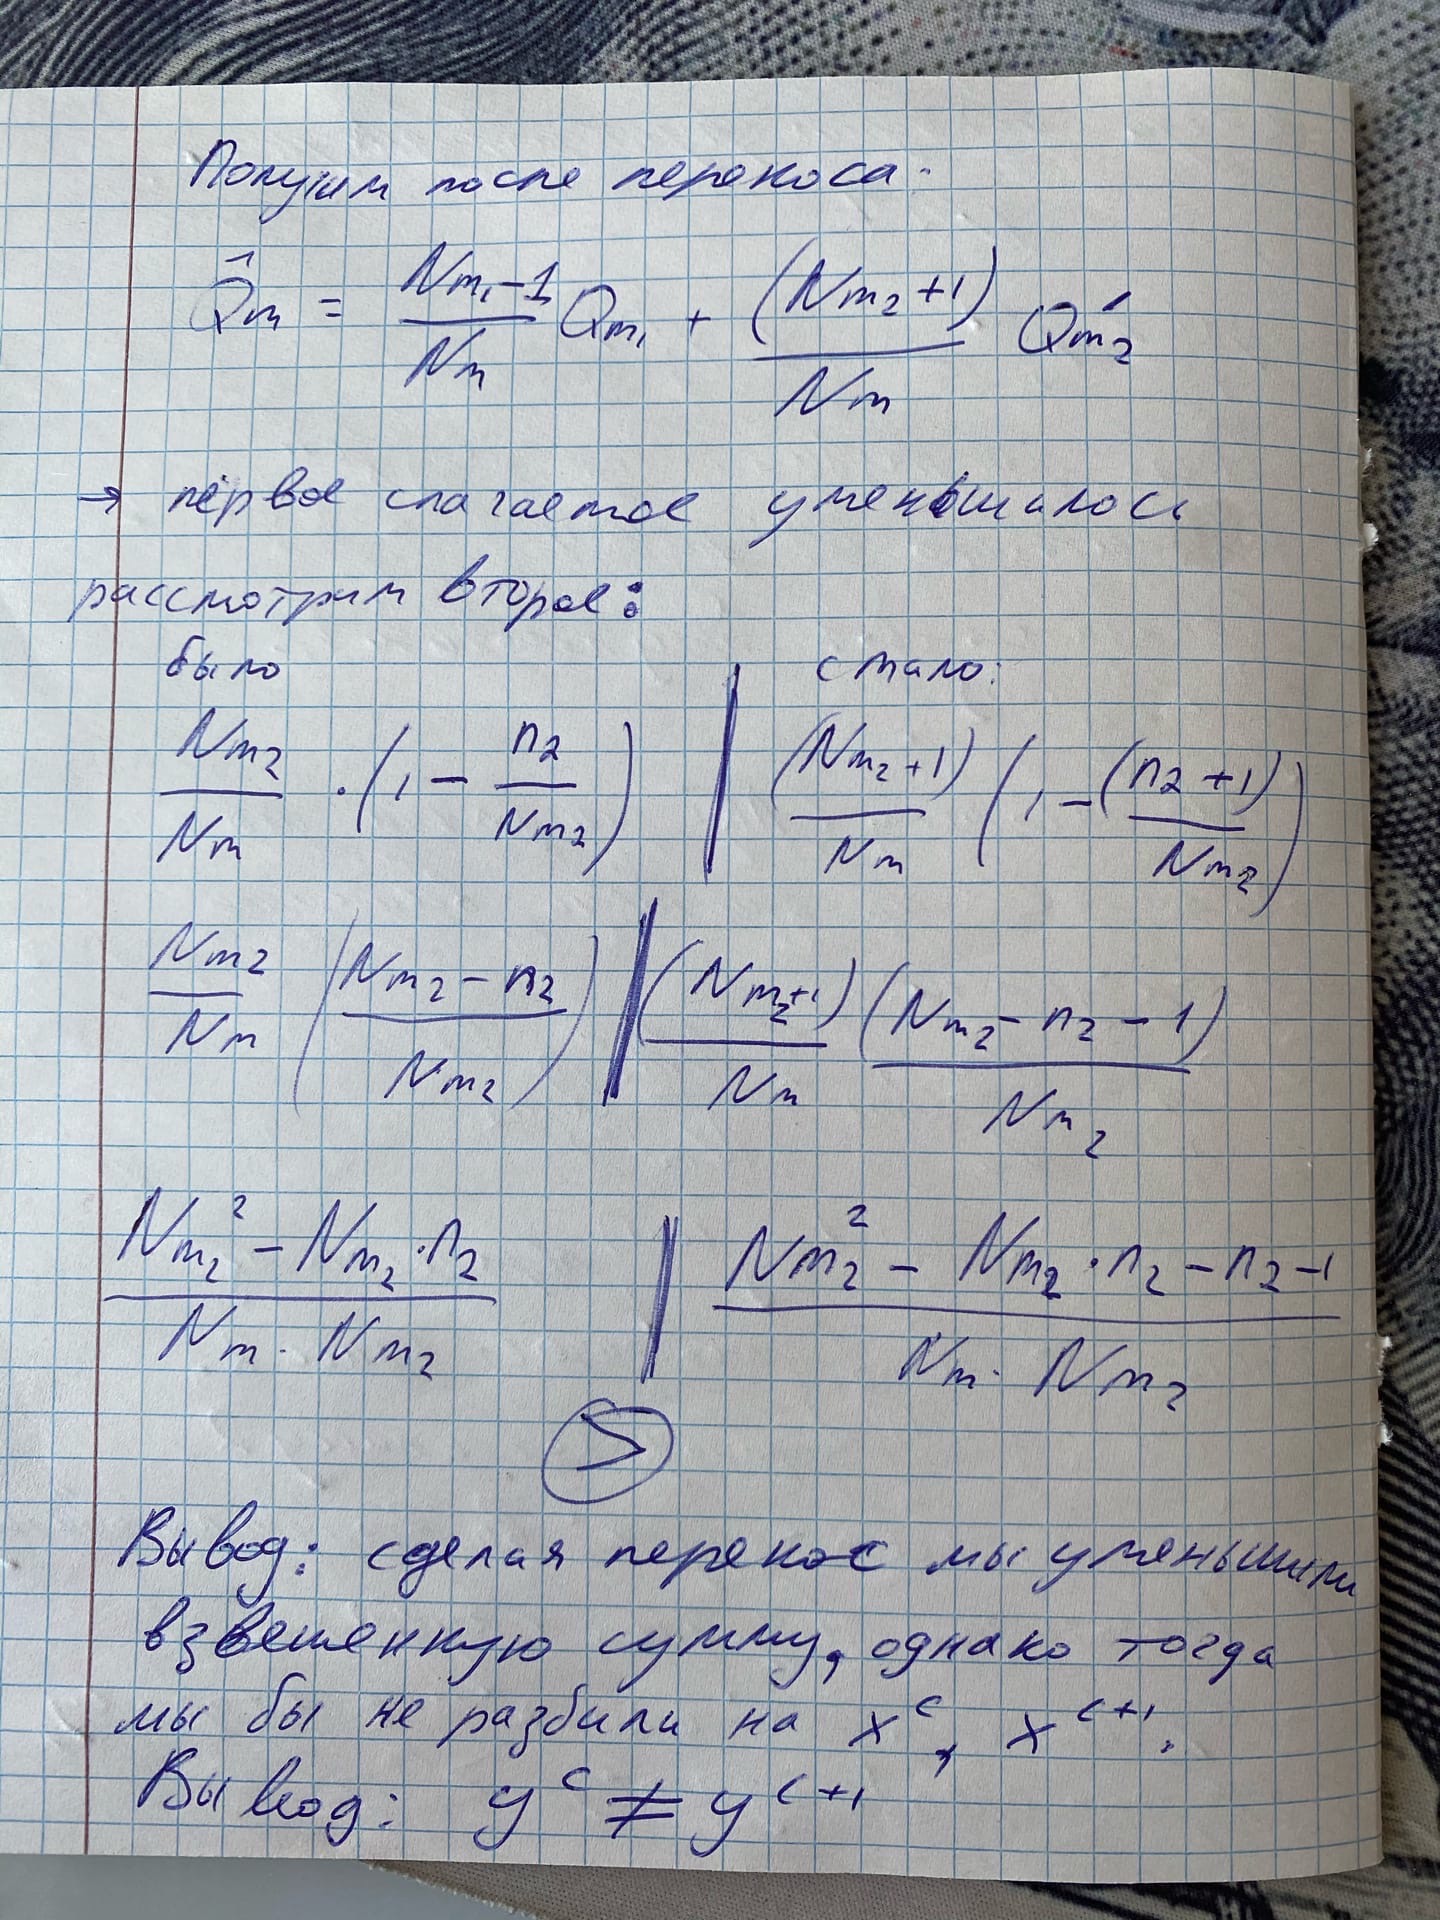 Получим после перекоса:
Q̂m = (Nm₁-1)/Nm Qm₁ + (Nm₂+1)/Nm Q'm₂
→ первое слагаемое уменьшилось
рассмотрим второе:
было | стало:
Nm₂/Nm · (1 - n₂/Nm₂) | (Nm₂+1)/Nm (1 - (n₂+1)/Nm₂)
Nm₂/Nm ((Nm₂ - n₂)/Nm₂) | (Nm₂+1)/Nm (Nm₂ - n₂ - 1)/Nm₂
(Nm₂² - Nm₂·n₂)/(Nm · Nm₂) | (Nm₂² - Nm₂·n₂ - n₂ - 1)/(Nm · Nm₂)
>
Вывод: сделая перекос мы уменьшили
взвешенную сумму, однако тогда
мы бы не разбили на xᶜ, xᶜ⁺¹.
Вывод: yᶜ ≠ yᶜ⁺¹